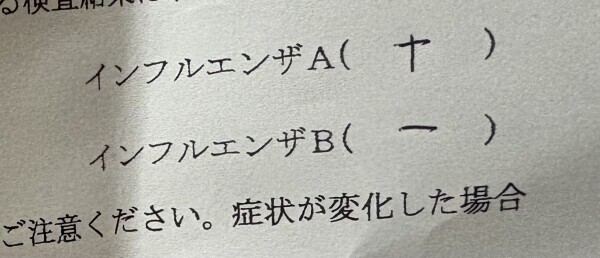 る検査結果は
インフルエンザA( + )
インフルエンザB( − )
ご注意ください。症状が変化した場合